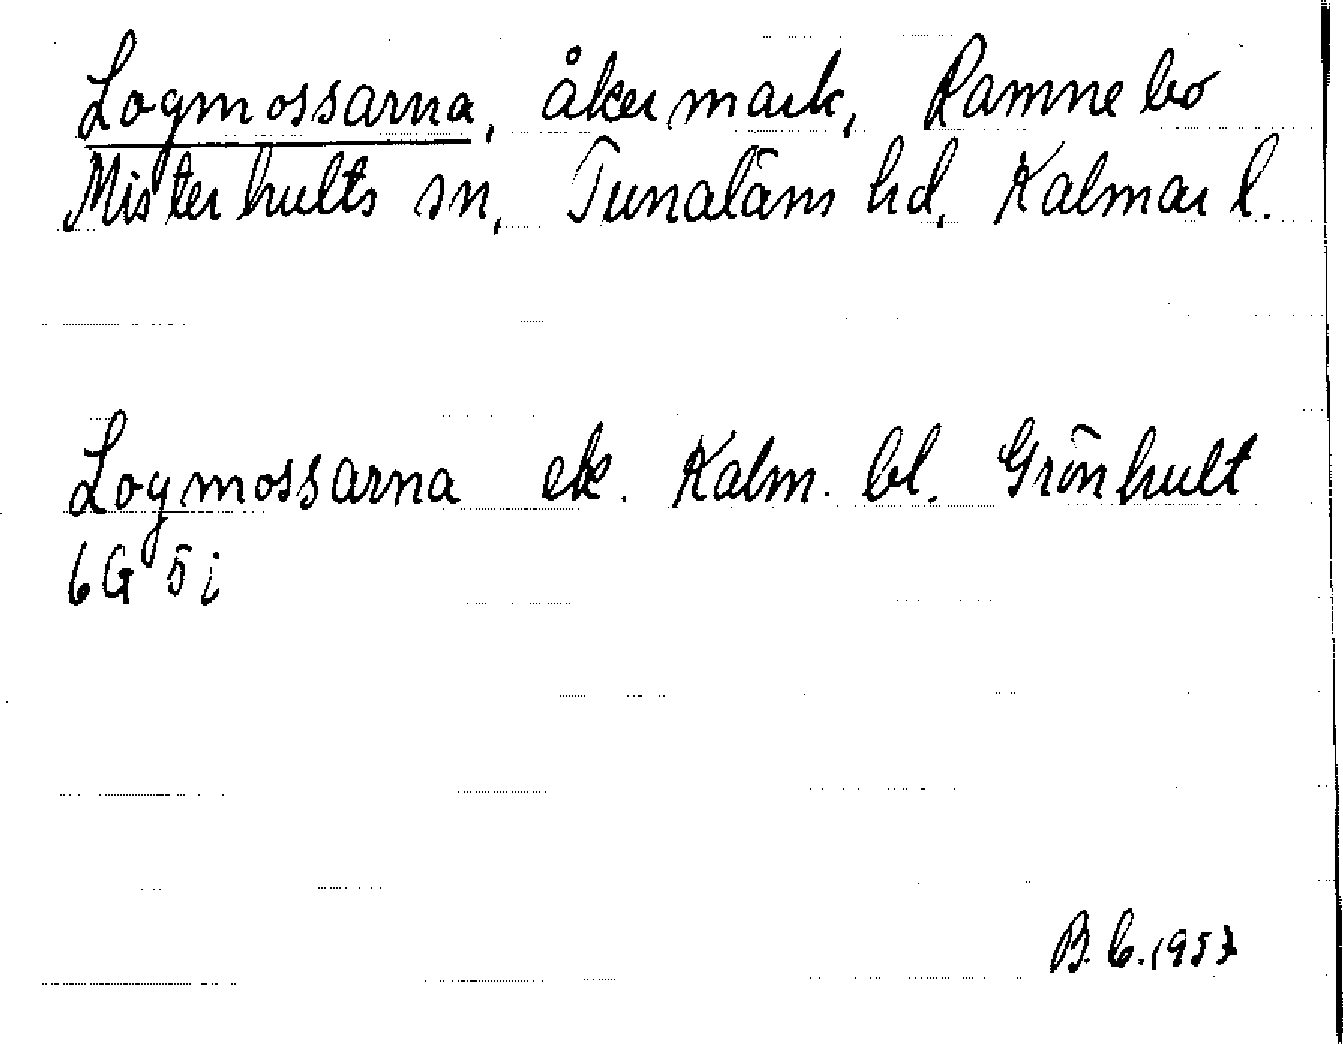 Logmossarna, åkermark, Ramnebo
Misterhults sn, Tunaläns hd, Kalmar l.
Logmossarna ek. Kalm. bl. Grönhult
6G 5i
B. C. 1953